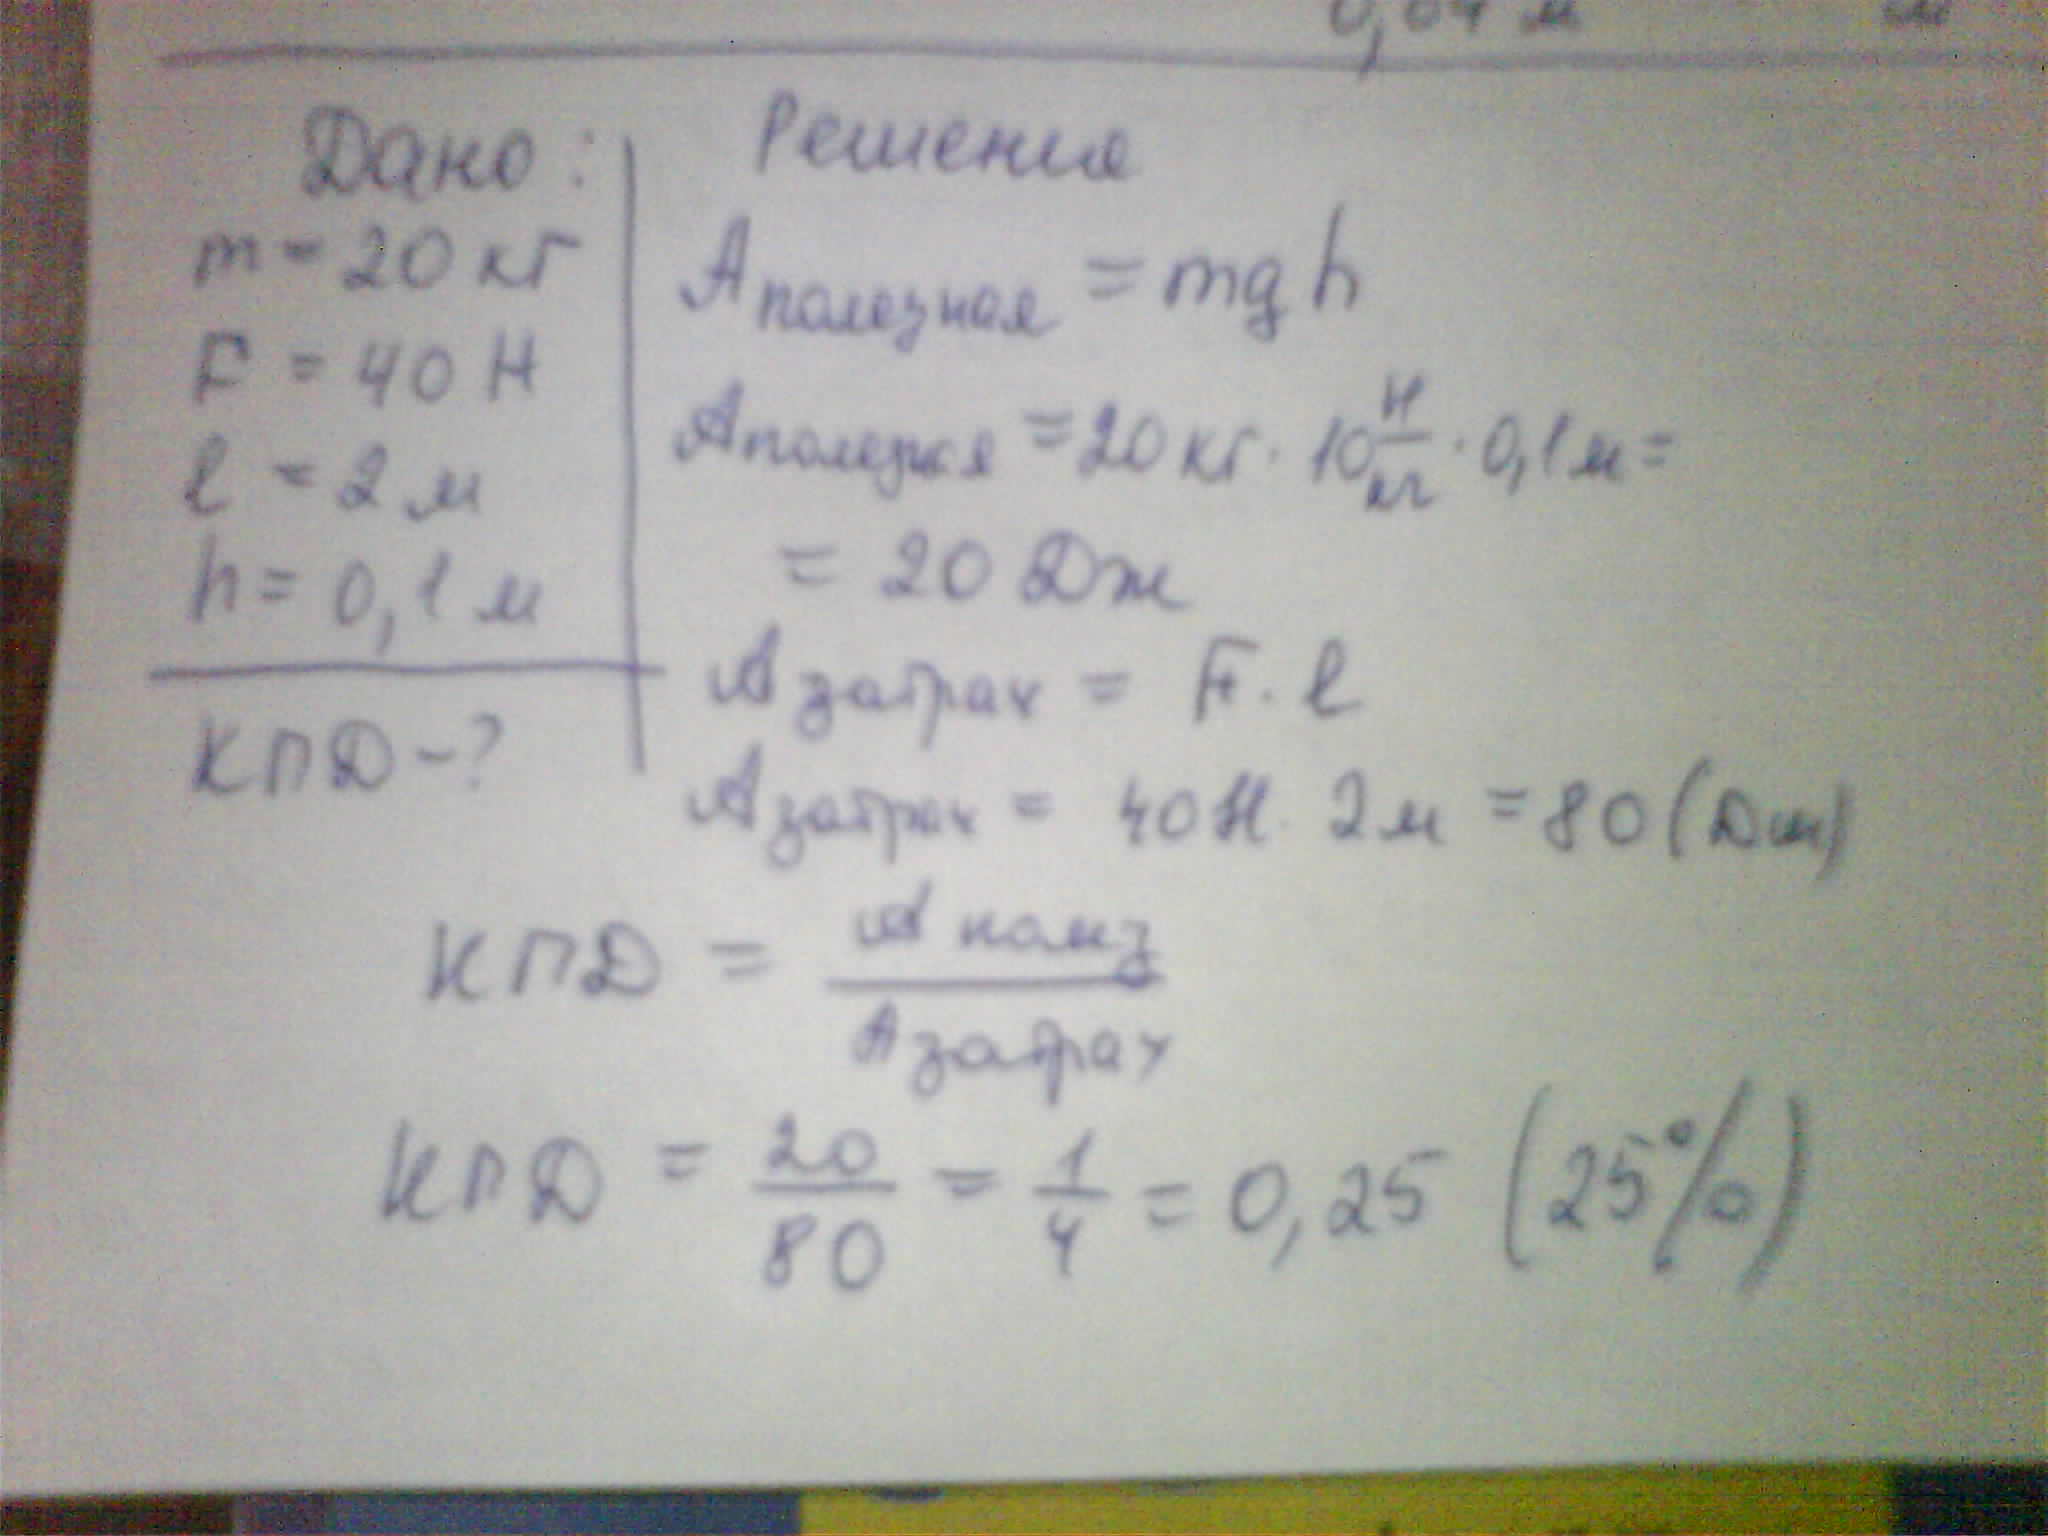 0,04 м м
Дано:
m = 20 кг
F = 40 Н
l = 2 м
h = 0,1 м
КПД - ?
Решения
Aполезная = mgh
Aполезня = 20 кг · 10 Н/кг · 0,1 м =
= 20 Дж
Aзатрач = F · l
Aзатрач = 40 Н · 2 м = 80 (Дж)
КПД = Aполз / Aзатрач
КПД = 20/80 = 1/4 = 0,25 (25%)